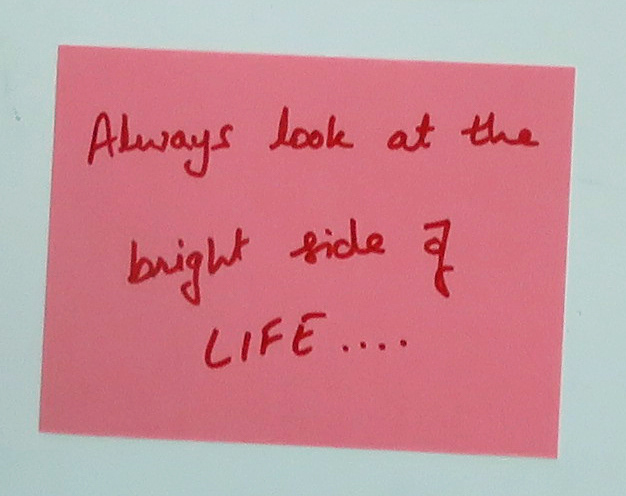 Always look at the
bright side of
LIFE....